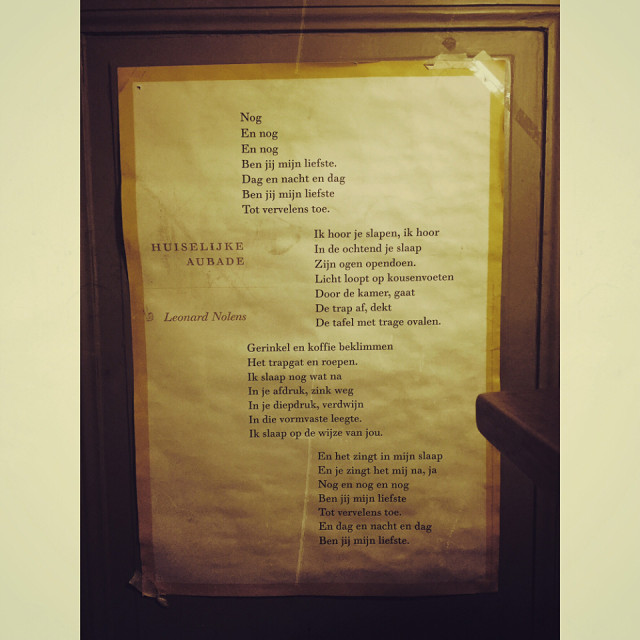 Nog
En nog
En nog
Ben jij mijn liefste.
Dag en nacht en dag
Ben jij mijn liefste
Tot vervelens toe.
HUISELIJKE
AUBADE
Leonard Nolens
Ik hoor je slapen, ik hoor
In de ochtend je slaap
Zijn ogen opendoen.
Licht loopt op kousenvoeten
Door de kamer, gaat
De trap af, dekt
De tafel met trage ovalen.
Gerinkel en koffie beklimmen
Het trapgat en roepen.
Ik slaap nog wat na
In je afdruk, zink weg
In je diepdruk, verdwijn
In die vormvaste leegte.
Ik slaap op de wijze van jou.
En het zingt in mijn slaap
En je zingt het mij na, ja
Nog en nog en nog
Ben jij mijn liefste
Tot vervelens toe.
En dag en nacht en dag
Ben jij mijn liefste.